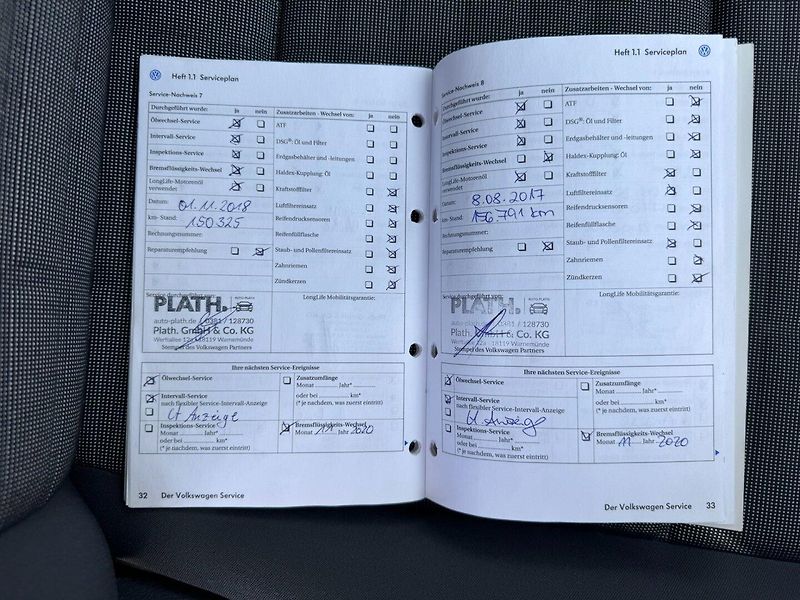 Heft 1.1 Serviceplan
Service-Nachweis 7
Durchgeführt wurde: ja nein
Ölwechsel-Service
Intervall-Service
Inspektions-Service
Bremsflüssigkeits-Wechsel
LongLife-Motorenöl
verwendet
Datum: 01.11.2018
km- Stand: 150325
Rechnungsnummer:
Reparaturempfehlung
Zusatzarbeiten - Wechsel von: ja nein
ATF
DSG®: Öl und Filter
Erdgasbehälter und -leitungen
Haldex-Kupplung: Öl
Kraftstofffilter
Luftfiltereinsatz
Reifendrucksensoren
Reifenfüllflasche
Staub- und Pollenfiltereinsatz
Zahnriemen
Zündkerzen
Service durchgeführt von:
PLATH.
AUTO-PLATH
auto-plath.de 0381 / 128730
Plath. GmbH & Co. KG
Werftallee 12a 18119 Warnemünde
Stempel des Volkswagen Partners
LongLife Mobilitätsgarantie:
Ihre nächsten Service-Ereignisse
Ölwechsel-Service
Intervall-Service
nach flexibler Service-Intervall-Anzeige
Lt Anzeige
Inspektions-Service
Monat Jahr*
oder bei km*
(* je nachdem, was zuerst eintritt)
Zusatzumfänge
Monat Jahr*
oder bei km*
(* je nachdem, was zuerst eintritt)
Bremsflüssigkeits-Wechsel
Monat 11 Jahr 2020
32 Der Volkswagen Service
Heft 1.1 Serviceplan
Service-Nachweis 8
Durchgeführt wurde: ja nein
Ölwechsel-Service
Intervall-Service
Inspektions-Service
Bremsflüssigkeits-Wechsel
LongLife-Motorenöl
verwendet
Datum: 8.08.2017
km- Stand: 156.791 km
Rechnungsnummer:
Reparaturempfehlung
Zusatzarbeiten - Wechsel von: ja nein
ATF
DSG®: Öl und Filter
Erdgasbehälter und -leitungen
Haldex-Kupplung: Öl
Kraftstofffilter
Luftfiltereinsatz
Reifendrucksensoren
Reifenfüllflasche
Staub- und Pollenfiltereinsatz
Zahnriemen
Zündkerzen
Service durchgeführt von:
PLATH.
AUTO-PLATH
auto-plath.de 0381 / 128730
Plath. GmbH & Co. KG
Werftallee 12a 18119 Warnemünde
Stempel des Volkswagen Partners
LongLife Mobilitätsgarantie:
Ihre nächsten Service-Ereignisse
Ölwechsel-Service
Intervall-Service
nach flexibler Service-Intervall-Anzeige
Inspektions-Service
Monat Jahr*
oder bei km*
(* je nachdem, was zuerst eintritt)
Zusatzumfänge
Monat Jahr*
oder bei km*
(* je nachdem, was zuerst eintritt)
Bremsflüssigkeits-Wechsel
Monat 11 Jahr 2020
Der Volkswagen Service 33